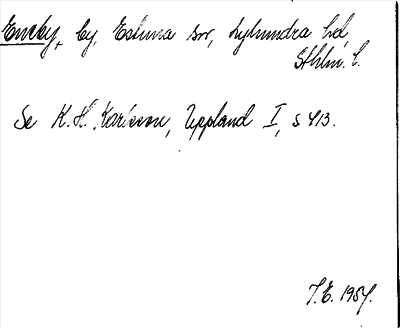 Emby, by, Estuna sn, Lyhundra hd
Sthlm. l.
Se K. H. Karlsson, Uppland I, s 413.
J. E. 1954.